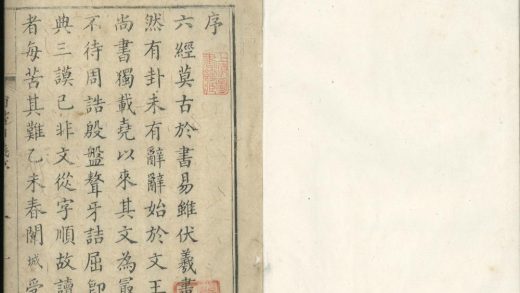 序
六經莫古於書易雖伏羲畫
然有卦未有辭辭始於文王
尚書獨載堯以來其文為㝡
不待周誥殷盤聱牙詰屈即
典三謨已非文從字順故讀
者每苦其難乙未春閩城受